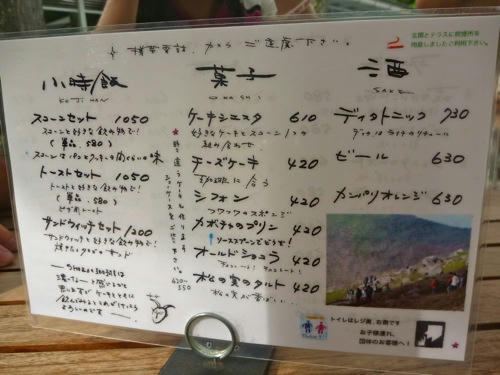 玄関とテラスに喫煙所を
用意しましたご利用下さい。
携帯電話、カメラ ご遠慮下さい。
小時飯
KOJIHAN
スコーンセット 1050
スコーンと好きな飲み物で!
(単品.580)
スコーンはパンとクッキーの間ぐらいの味
トーストセット 1050
トーストと好きな飲み物で!
(単品.580)
サンドウィッチセット 1200
サンドウィッチと好きな飲み物で!
菓子
OKASHI
ケーキシエスタ 610
好きなケーキとスコーン1つの
組み合わせ
チーズケーキ 420
珈琲に合う
シフォン 420
フワフワのスポンジ
カボチャのプリン 420
ソーススプーンでどうぞ!
オールドショコラ 420
松の実のタルト 420
松の実が香ばしい
酒
SAKE
ディタトニック 730
ディタはライチのリキュール
ビール 630
カンパリオレンジ 630
トイレはレジ奥、右側です
お子様連れ、
団体のお客様へ!